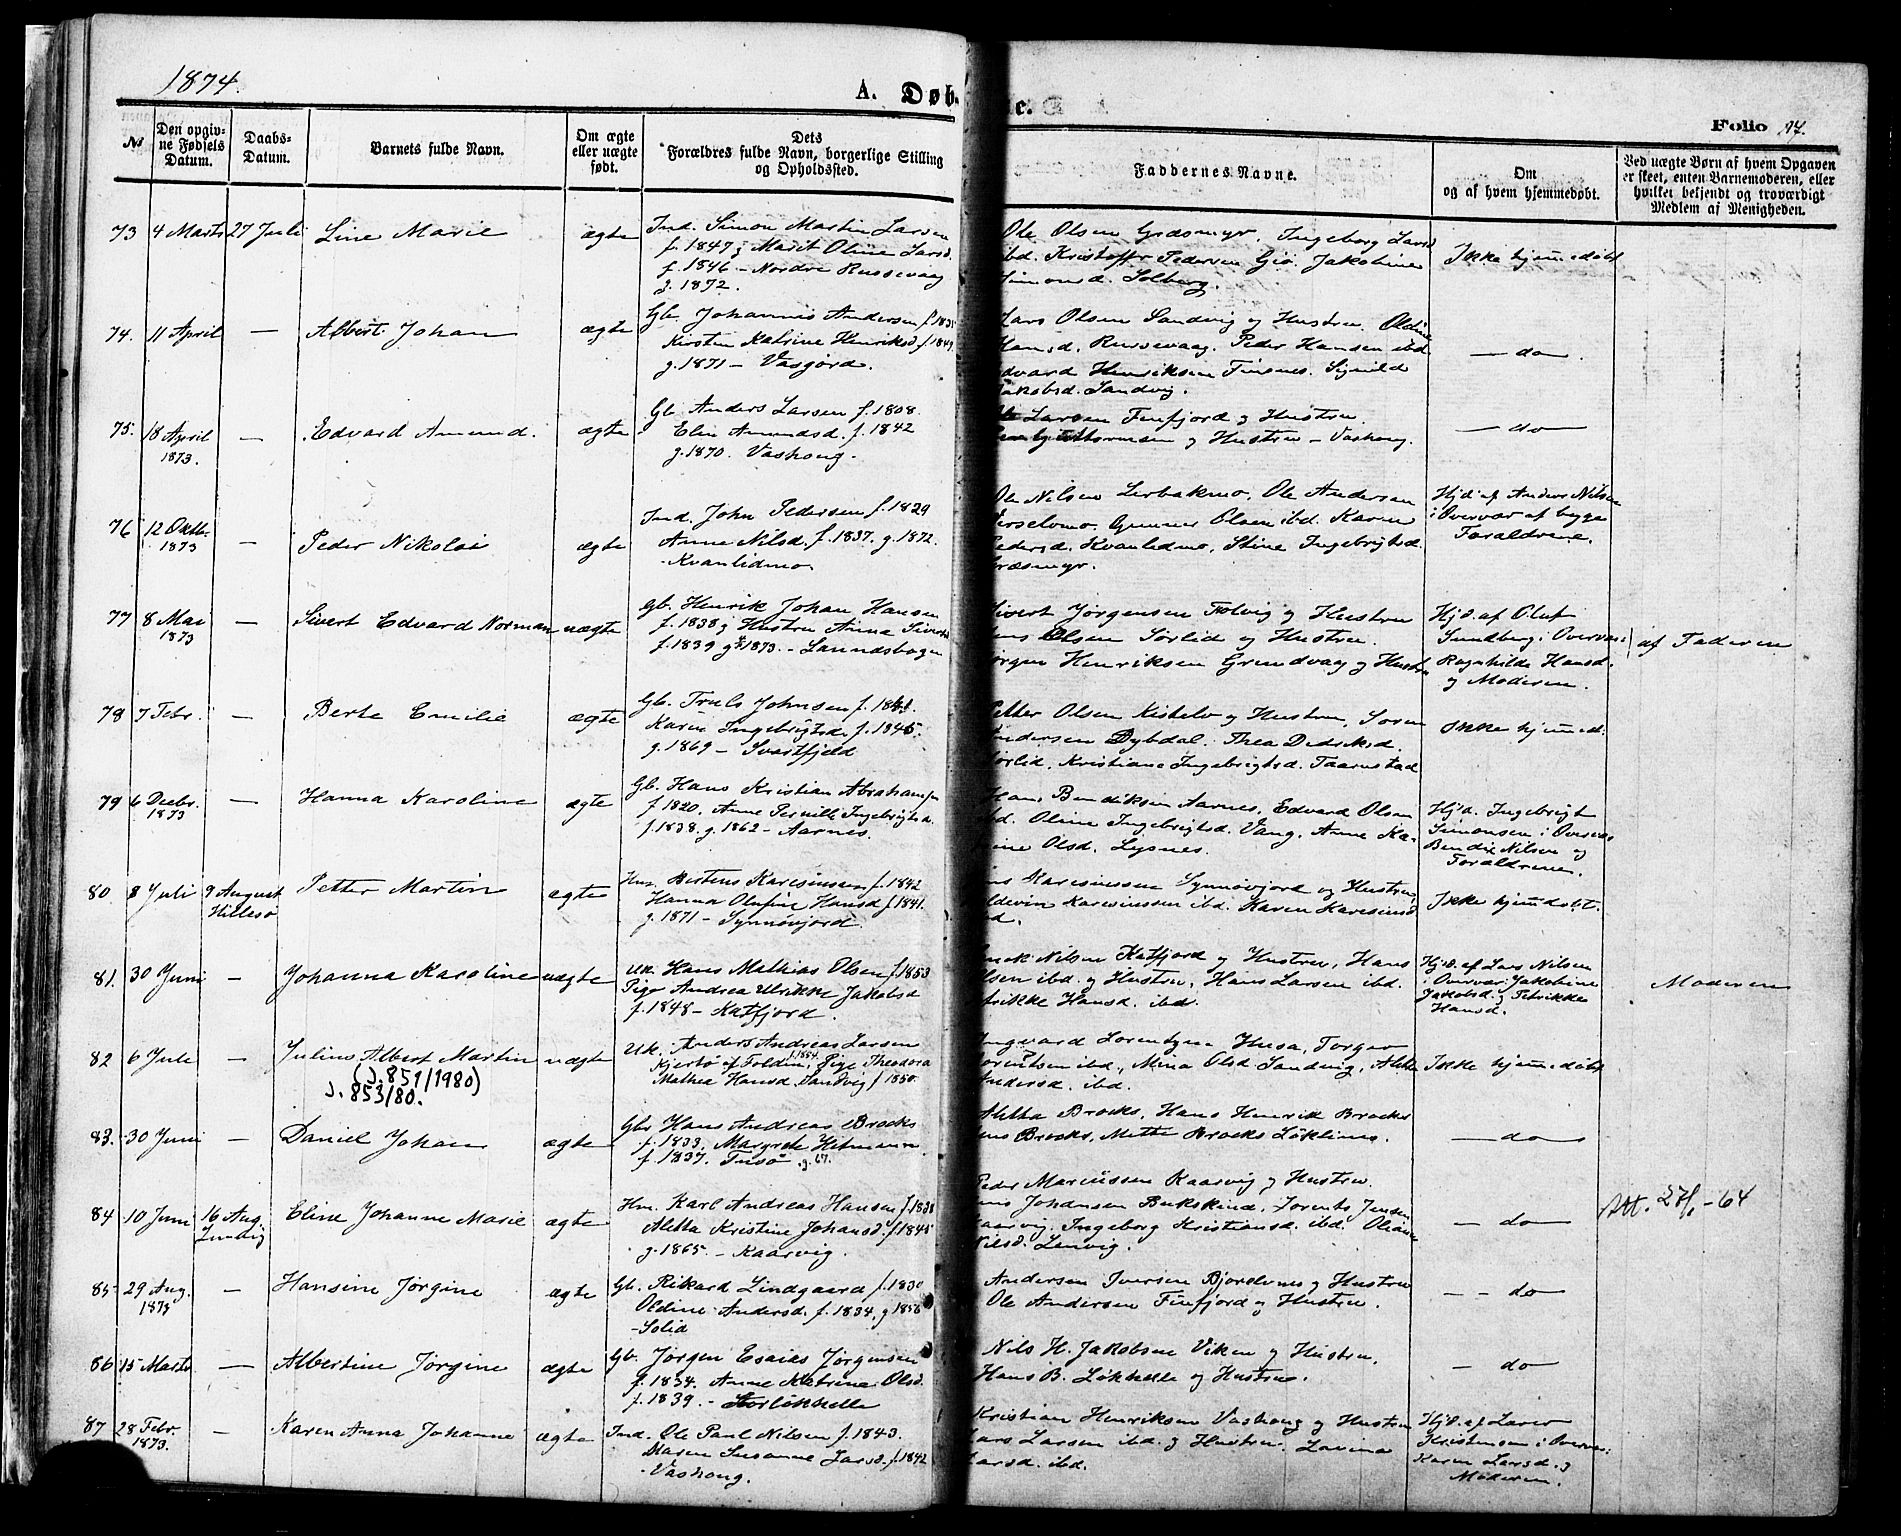 1874.
A. Døb-
te.
Folio 17.
№
Den opgiv-
ne Fødsels
Datum.
Daabs-
Datum.
Barnets fulde Navn.
Om ægte
eller uægte
født.
Dets
Forældres fulde Navn, borgerlige Stilling
og Opholdssted.
Faddernes Navne.
Om
og af hvem hjemmedøbt.
Ved uægte Børn af hvem Opgaven
er skeet, enten Barnemoderen, eller
hvilket bekjendt og troværdigt
Medlem af Menigheden.
73 4 Marts 27 Juli Line Marie ægte
Ind. Simon Martin Larsen
f. 1847 & Marit Oline Larsd.
f. 1846 – Nordre Russevaag
g. 1872.
Ole Olsen Græsmyr, Ingeborg Larsd
ibd. Kristoffr Pedersen Gio. Jakobine
Simonsd. Solberg.
Ikke hjemmedøbt
74. 11 April – Albert Johan ægte
Gb. Johannes Andersen f. 1835
Kirsten Katrine Henriksd. f. 1849
g. 1871 – Vasjord.
Lars Olsen Sandvig og Hustru Oldine
Hansd. Russevaag. Peder Hansen ibd
Edvard Henriksen Finnes. Signild
Jakobsd. Sandvig.
– do –
75. 18 April
1873.
– Edvard Amund. ægte
Gb. Anders Larsen f. 1808.
Elen Amundsd. f. 1842
g. 1870. Vashoug.
Ole Larsen Finfjord og Hustru
og Hustru – Vashoug.
– do –
76 12 Oktb.
1873
– Peder Nikolai ægte
Ind. John Pedersen f. 1829
Anne Nilsd. f. 1837. g. 1872.
– Kvanlidmo
Ole Nilsen Lerbakmo, Ole Andersen
Gunner Olsen ibd. Karen
Pedersd. Kvanlidmo, Stine Ingebrigtsd.
Græsmyr.
Hjd. af Anders Nilsen
i Overvær af begge
Forældrene.
77 8 Mai
1873
– Sivert Edvard Norman uægte
Gb. Henrik Johan Hansen
f. 1838 & Hustru Anna Sivertsd.
f. 1839 g. 1873. – Laundsbogen
Sivert Jørgensen Tolvig og Hustru
Olsen Sørlid og Hustru.
Jørgen Henriksen Grundvaag og Hustru
Hjd. af Oluf
Sundberg i Overvær
Ragnhilda Hansd.
og Moderen.
af Faderen
78 7 Febr. – Berte Emilie ægte
Gb. Truls Johnsen f.
Karen Ingebrigtsd. f. 1845.
g. 1869 – Svartfjeld
Petter Olsen Kistelv og Hustru, Søren
Andersen Dybdal. Thea Didriksd.
Sørlid. Kristiane Ingebrigtsd. Taarnstad
Ikke hjemmed.
79 6 Decbr.
1873
– Hanna Karoline ægte
Gb. Hans Kristian Abrahamsen
f. 1820. Anne Pernille Ingebrigtsd.
f. 1838. g. 1862 – Aarnes.
Hans Bendiksen Aarnes, Edvard Olsen
ibd. Oline Ingebrigtsd. Vang. Anne Ka-
rine Olsd. Lysnes.
Hjd. Ingebrigt
Simonsen i Overvær
Bendix Nilsen og
Forældrene.
80. 8 Juli 9 August
Hillesø
Petter Martin ægte
Hm. Bertens Karesiussen f. 1842
Hanna Olufine Hansd. f. 1841.
g. 1871 – Synnøvjord.
Karesiussen Synnøvjord og Hustru,
Karesiussen ibd. Karen Karesiusd
ibd.
Ikke hjemmdøbt.
81. 30 Juni – Johanna Karoline uægte
Uk. Hans Mathias Olsen f. 1853
Pige Andrea Ulrikke Jakobsd
f. 1848 – Katfjord.
Enok Nilsen Katfjord og Hustru, Hans
Olsen ibd. og Hustru, Hans Larsen ibd.
Petrikke Hansd. ibd.
Hjd. af Lars Nilsen
i Overvær Jakobine
Jakobsd. og Petrikke
Hansd.
Moderen
82 6 Juli – Julius Albert Martin uægte
(J. 851/1980)
J. 853/80.
Uk. Anders Andreas Larsen
Kjertø af Folden, f. 1854. Pige Theodora
Mathea Hansd. Sandvig f. 1850.
Ingvard Lorentzen Husa, Torger
Lorentsen ibd., Mina Olsd Sandvig,
Andersd. ibd.
Ikke hjemmedøbt
83. 30 Juni – Daniel Johan ægte
Gbr Hans Andreas Brocks
f. 1833. Margrete Heitmann
f. 1837. Tussø g. 67.
Aletha Brocks, Hans Henrik Brocks
Jens Brocks, Mette Brocks Løksiimo.
– do –
84 10 Juni 16 Aug.
Eline Johanne Marie ægte
Hm. Karl Andreas Hansen f. 1838
Aletta Kristine Johansd. f. 1845
g. 1865. – Kaarvig.
Peder Mariussen Kaarvig og Hustru.
Johansen Bukskind, Lorents Jensen
Kaarvig, Ingeborg Kristiansd. ibd. Oliane
Nilsd. Lenvig.
– do –
Att. 27/1 – 64
85 29 Aug.
1873
– Hansine Jørgine ægte
Gb. Rikard Lindgaard f. 1830
Oldine Andersd. f. 1834, g. 1856
– Solid
Andersen Iversen Bjorelvnes og Hustru
Ole Andersen Finfjord og Hustru.
– – do
86 15 Marts – Albertine Jørgine ægte
Gb. Jørgen Esaias Jørgensen
f. 1834. Anne Katrine Olsd.
f. 1839. – Storløkhelle
Nils H. Jakobsen Viken og Hustru,
Hans B. Løkhelle og Hustru.
– do
87 28 Febr.
1873.
– Karen Anna Johanne ægte
Ind. Ole Paul Nilsen f. 1843.
Maren Susanne Larsd. f. 1842
– Vashoug.
Kristian Henriksen Vashoug og Hustru
Lars Larsen ibd. og Hustru. Lovina
Larsd. ibd.
Hjd. af Laver
Kristensen i Overvær
Karen Larsd. og
Moderen.